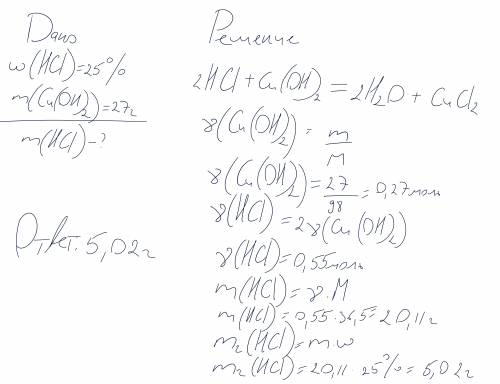 Дано
w(HCl)=25%
m(Cu(OH)₂)=27г
m(HCl)-?
Ответ. 5,02г
Решение
2HCl+Cu(OH)₂=2H₂O+CuCl₂
γ(Cu(OH)₂)=m/M
γ(Cu(OH)₂)=27/98=0,27моль
γ(HCl)=2γ(Cu(OH)₂)
γ(HCl)=0,55моль
m(HCl)=γ·M
m(HCl)=0,55·36,5=20,11г
m₂(HCl)=m·w
m₂(HCl)=20,11·25%=5,02г